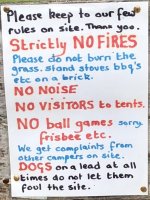 Please keep to our few
rules on site. Thank you.
Strictly NO FIRES
Please do not burn the
grass. Stand stoves bbq's
etc on a brick.
NO NOISE
NO VISITORS to tents.
NO ball games sorry
frisbee etc.
We get complaints from
other campers on site.
DOGS on a lead at all
times do not let them
foul the site.